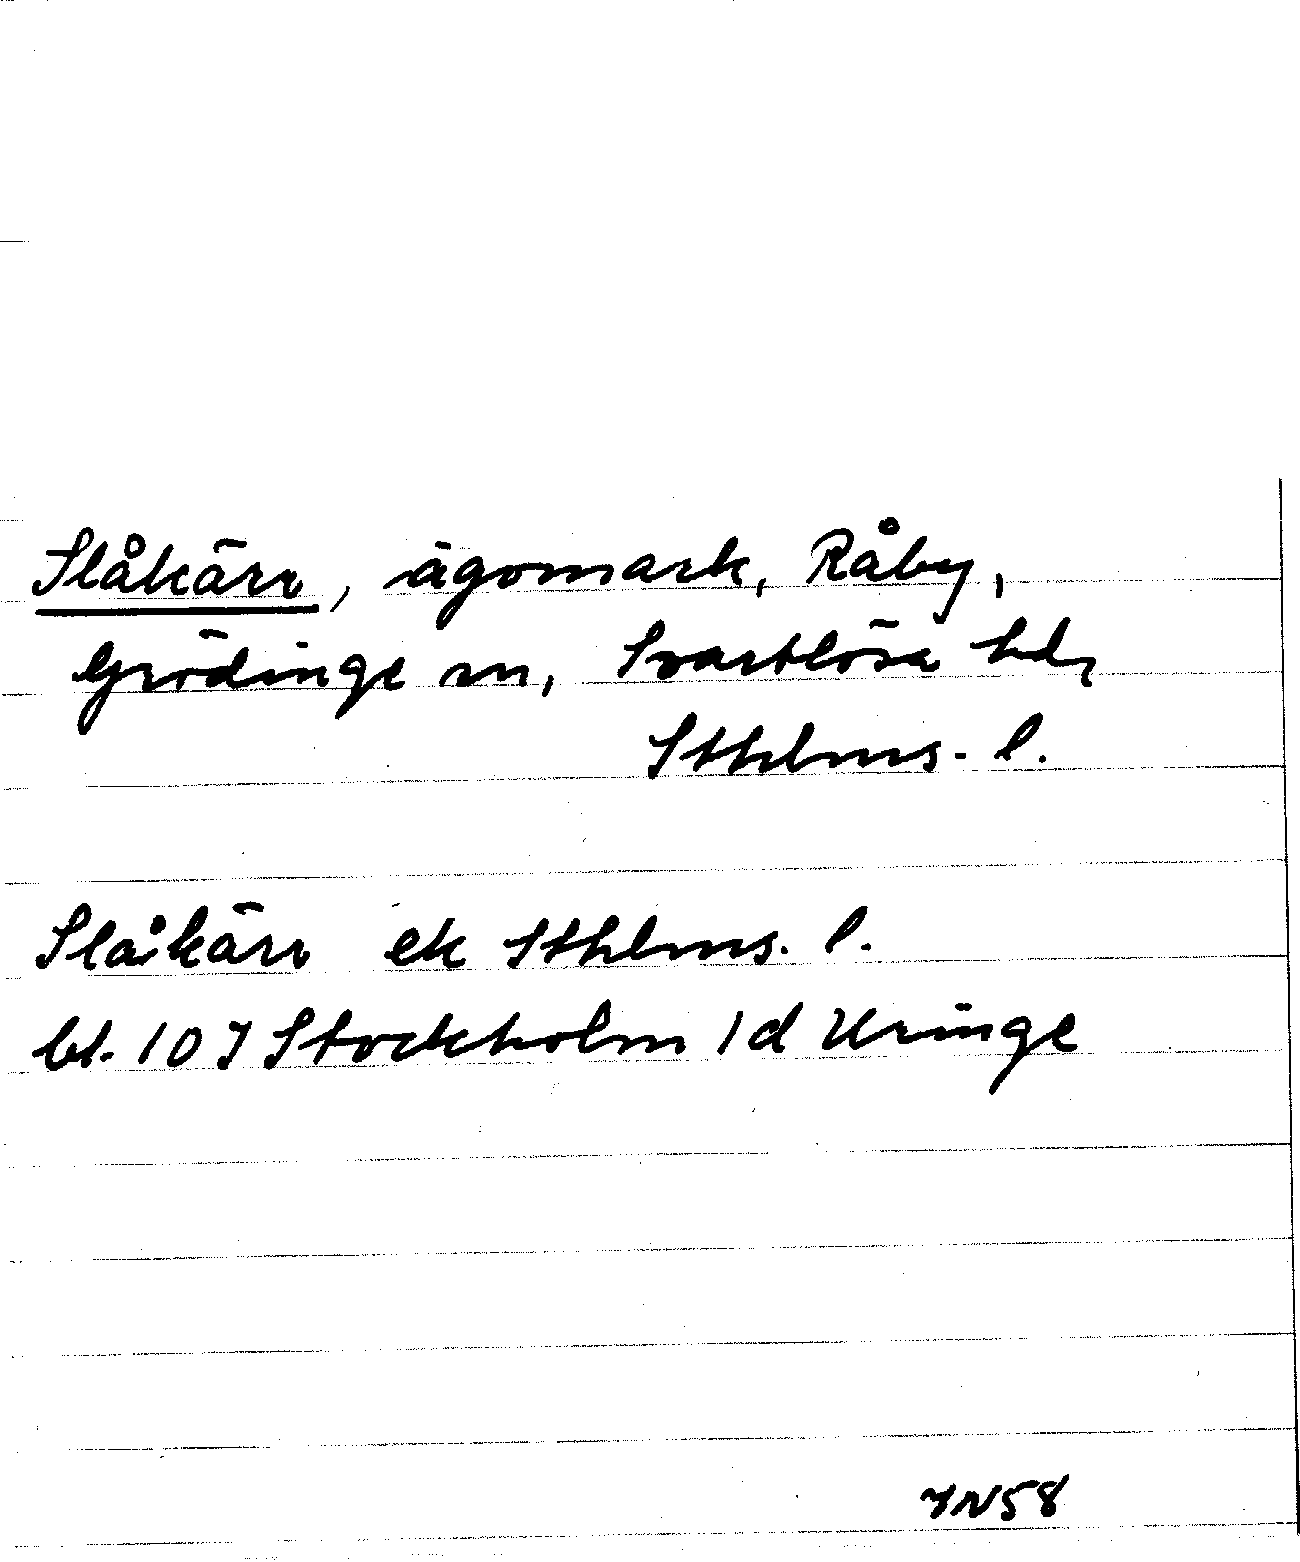 Slåkärr, ägomark, Råby,
Grödinge sn, Svartlösa hd,
Sthlms. l.
Slåkärr ek Sthlms. l.
bl. 10 I Stockholm 1d Uringe